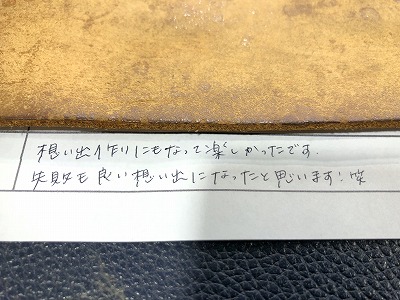 想い出作りにもなって楽しかったです.
失敗も良い想い出になったと思います!笑